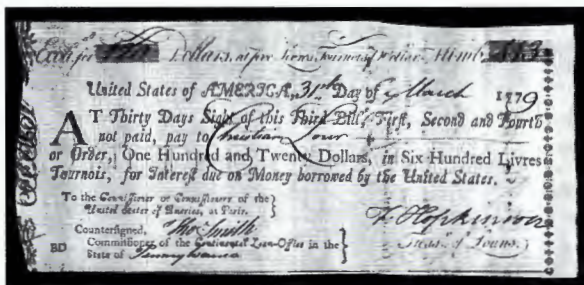 Dollars, at five Livres Tournois Dollar, Numb
United States of AMERICA, 31st Day of March 1779
AT Thirty Days Sight of this Third Bill, First, Second and Fourth
not paid, pay to Christian
or Order, One Hundred and Twenty Dollars, in Six Hundred Livres
Tournois, for Interest due on Money borrowed by the United States.
To the Commissioner or Commissioners of the
United States of America, at Paris.
F Hopkinson
Countersigned, Tho Smith
Commissioner of the Continental Loan-Office in the
Treas.r of Loans.
BD State of Pennsylvania